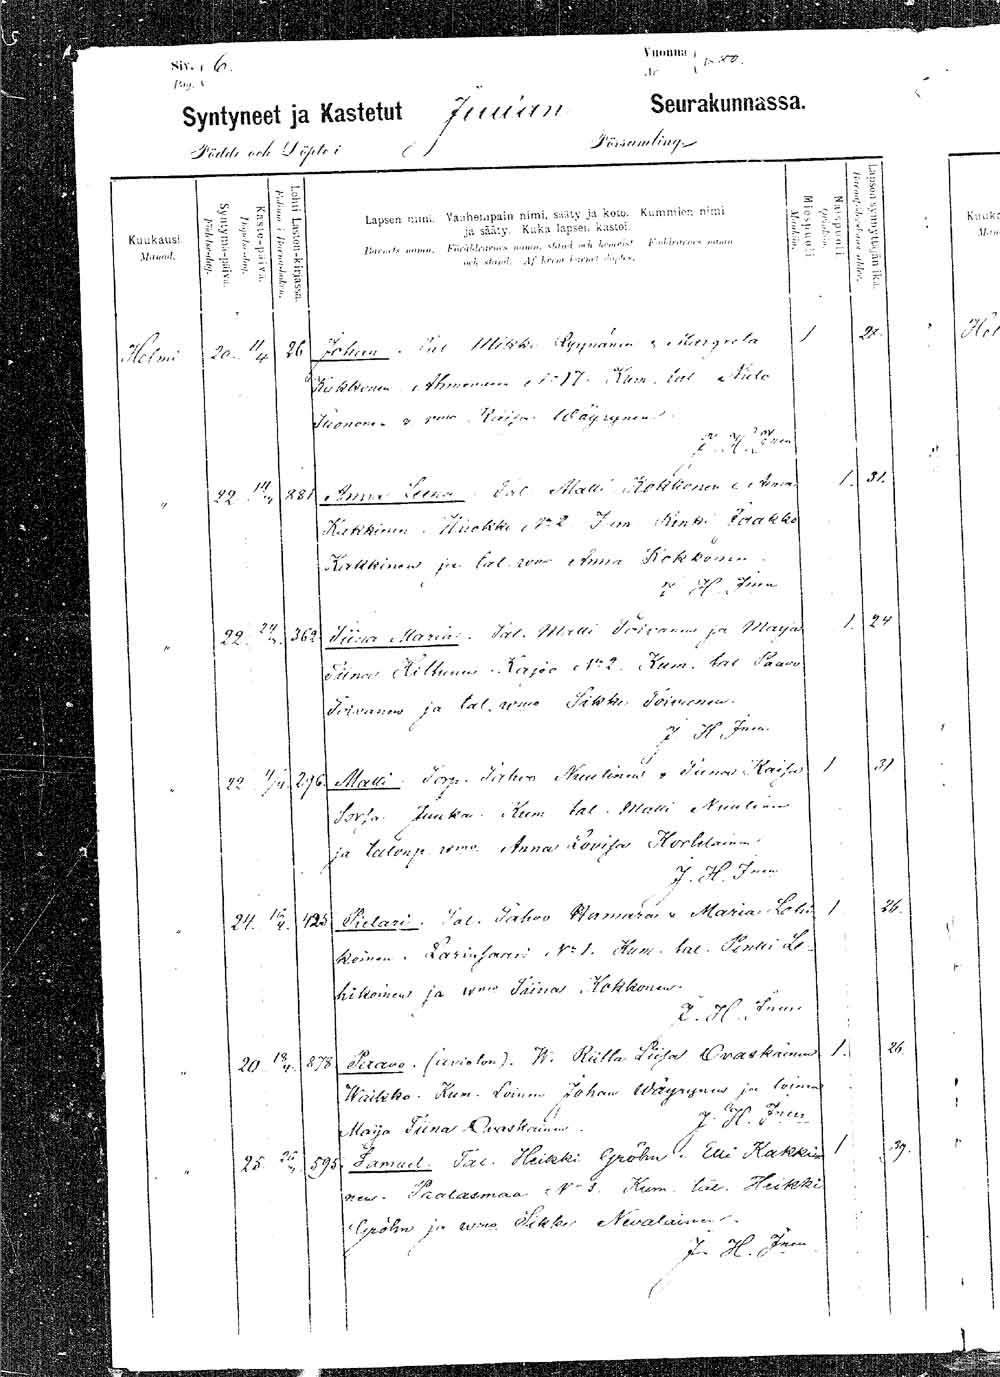 Siv. 6.
Pag.
Vuonna 1880.
År
Syntyneet ja Kastetut Juuan Seurakunnassa.
Födde och Döpte i Församling
Kuukausi.
Månad.
Syntymä-päivä.
Födelse-dag.
Kaste-päivä.
Döpelse-dag.
Lehti Lasten-kirjassa.
Folium i Barnaboken.
Lapsen nimi. Vanhempain nimi, sääty ja koto. Kummien nimi
ja sääty. Kuka lapsen kastoi.
Barnets namn. Föräldrarnes namn, stånd och hemvist. Faddrarnes namn
och stånd. Af hvem barnet döptes.
Miespuoli
Mankön.
Naispuoli
Qvinkön.
Lapsen synnyttäjän ikä.
Barnaföderskans ålder.
Helmi 20. 11/4 26 Johan. Tal. Mikko Ryynänen & Margreta 1 28.
Kukkonen Ahmovaara No 17. Kum. tal.
Ikonen & vmo Kaisa Wäyrynen.
J. H. Inen
" 22 14/4 281 Anna Leena. Tal. Matti Kokkonen & Anna 1. 31.
Kakkinen No 2 Kum. Renki Jaakko
Kakkinen ja tal. vmo Anna Kokkonen.
J. H. Inen
" 22. 24/4. 362 Tiina Maria. Tal. Matti Toivanen ja Maija 1. 24
Tiina Kajoo No 2. Kum. tal Paavo
Toivanen ja tal. vmo Sikke Toivonen.
J H Inen
" 22 4/4. 296. Matti. Torp. Tahvo Nuutinen & Tiina Kaisa 1 31
Sorsa. Juuka. Kum. tal. Matti Nuutinen
ja talonp. vmo Anna Lovisa Korhlainen.
J. H. Inen
" 24. 16/4. 425 Pietari. Tal. Tahvo Hamara & Maria Lehi- 1 26.
koinen. Larinsaari No 1. Kum. tal. Pentti Le-
hikoinen ja vmo Tiina Kokkonen.
J. H. Inen
" 20 18/4. 878 Paavo. (avioton). W. Riitta Liisa Ovaskainen 1. 26
Waikko. Kum. Loinen Johan Wäyrynen ja loinen
Maija Tiina Ovaskainen.
J. H. Inen
" 25. 25/4 595. Samuel. Tal. Heikki Gröhn. Elli Kakki- 1 39.
nen. Paalasmaa No 3. Kum. tal. Heikki
Gröhn ja vmo Sikke Nevalainen.
J. H. Inen